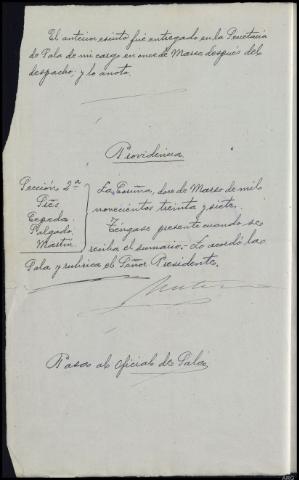 El anterior escrito fué entregado en la Secretaria
de Sala de mi cargo en once de Marzo después del
despacho; y lo anoto.
Providencia
Sección 2ª
Srés
Cepeda
Salgado.
Martin.
La Coruña, doce de Marzo de mil
novecientos treinta y siete.
Téngase presente cuando se
reciba el sumario.- Lo acordó la
Sala y rubrica el Señor Presidente.
Pasa al Oficial de Sala